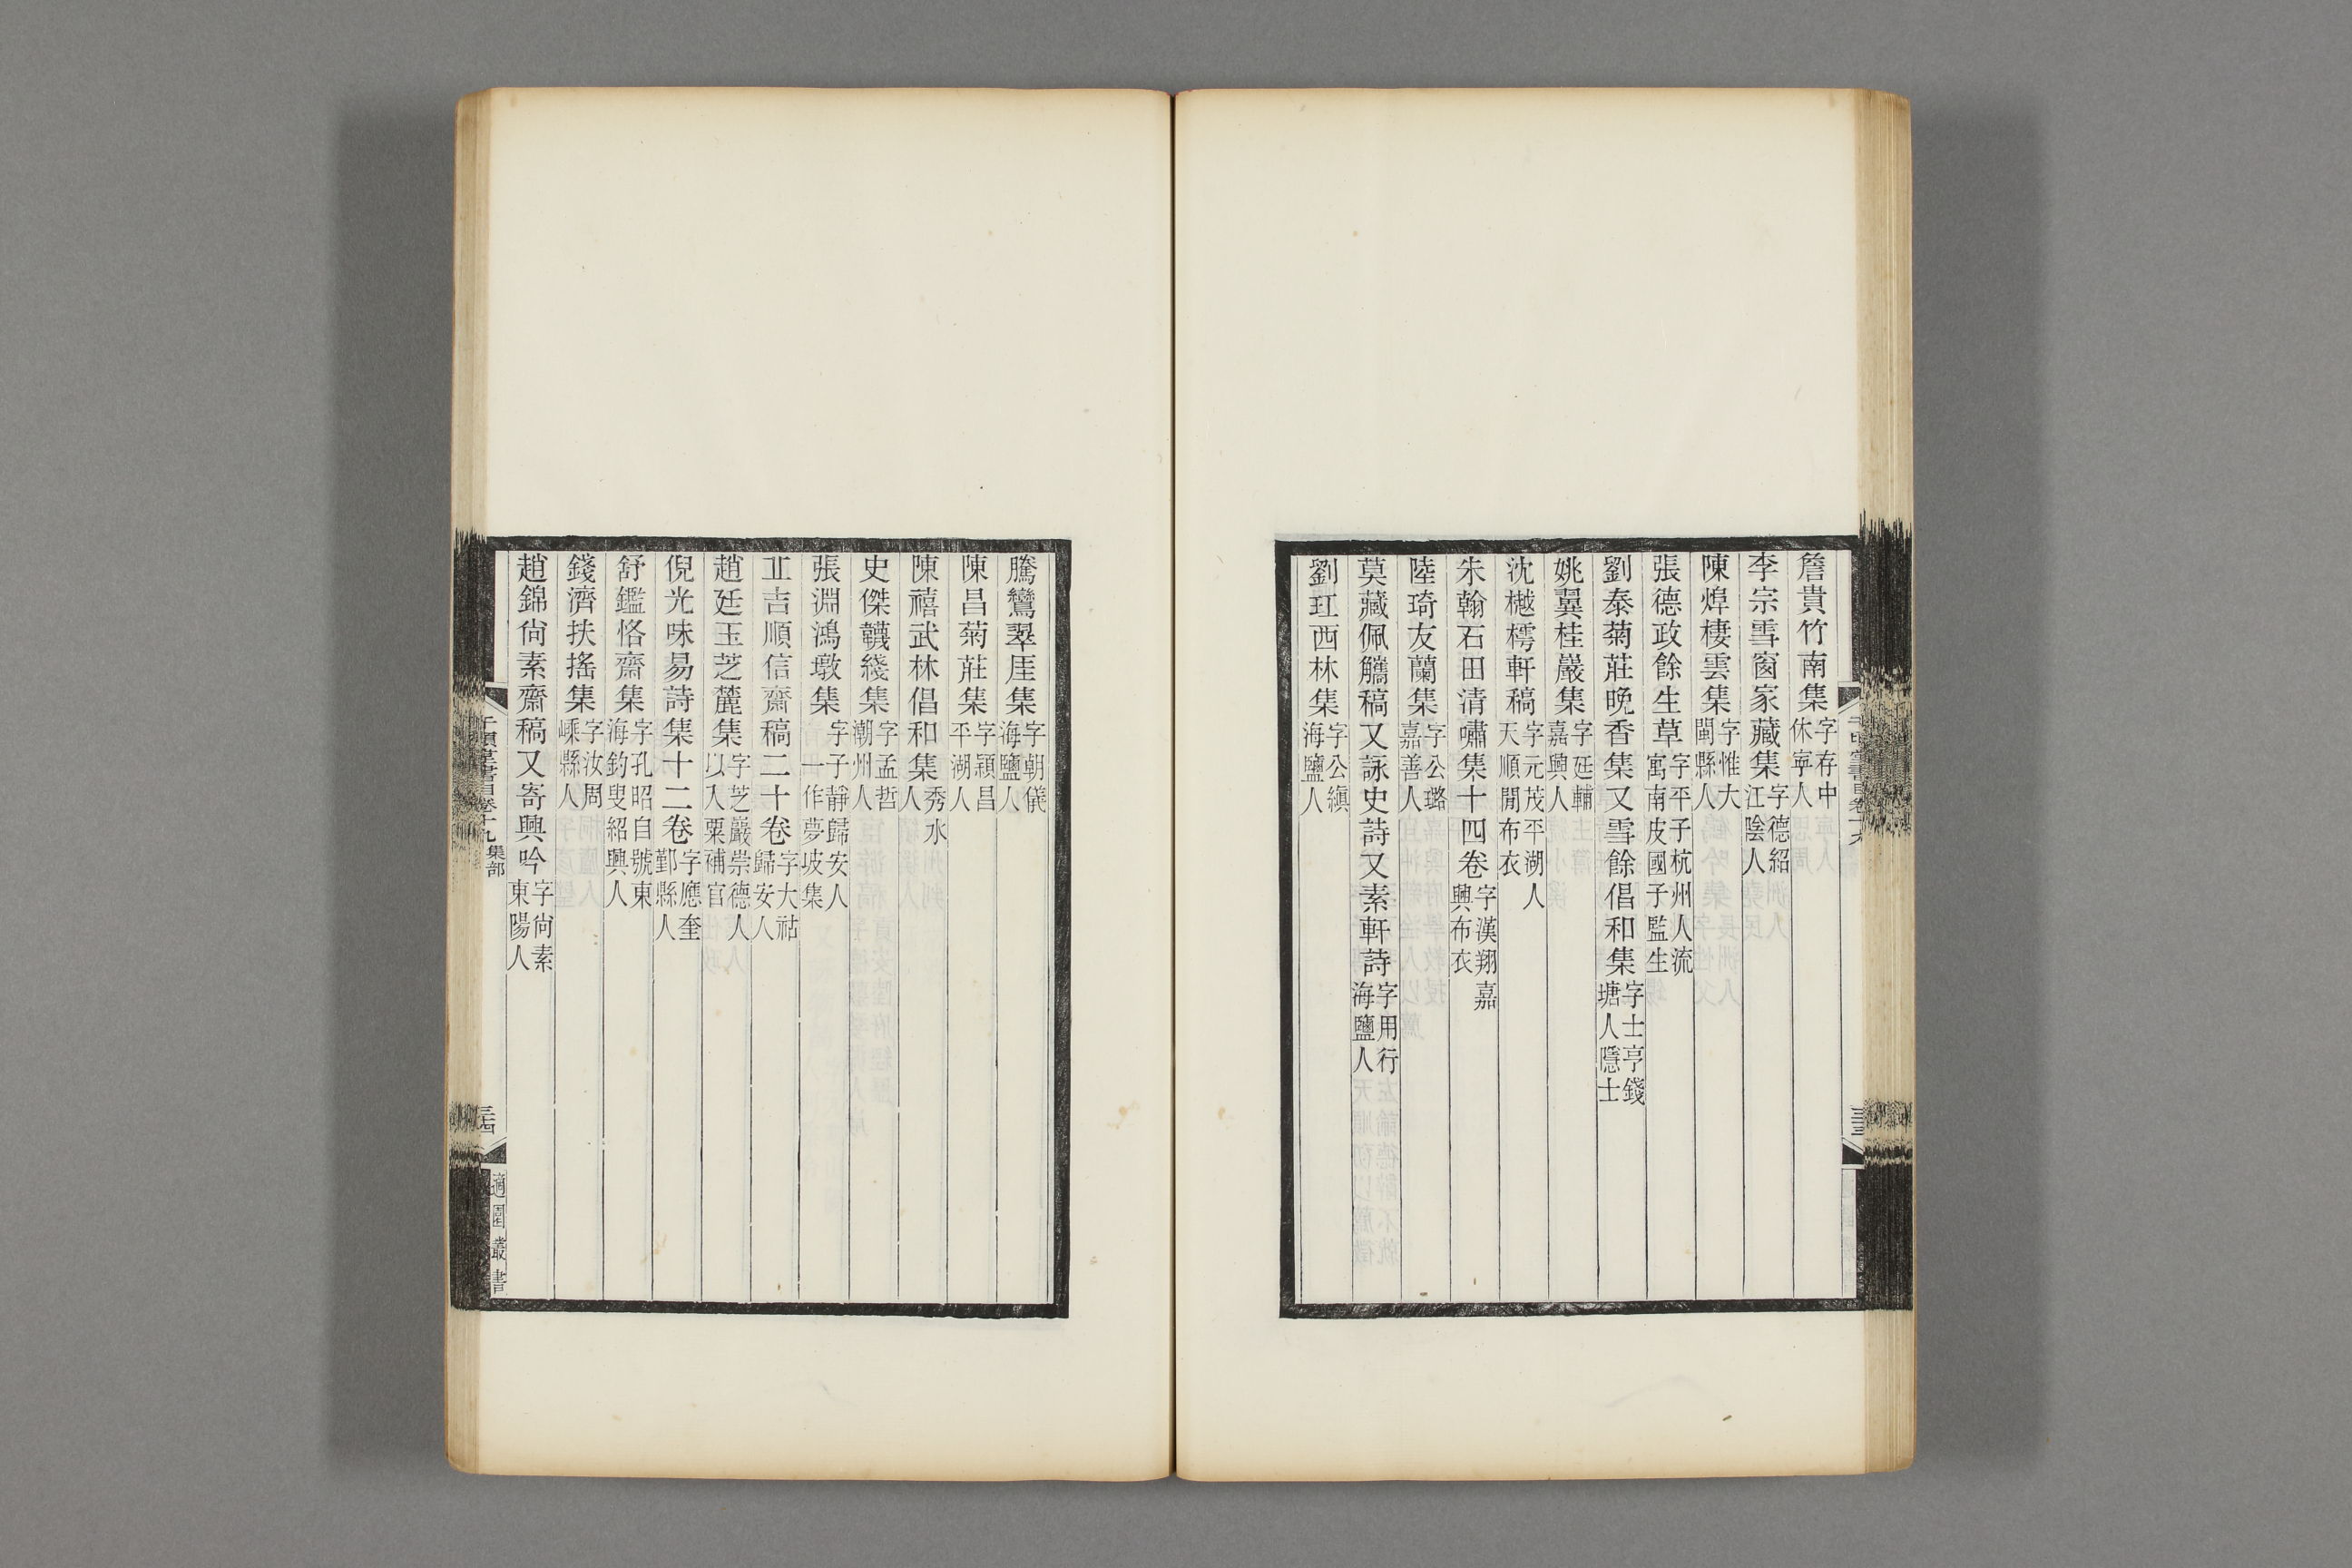 詹貴竹南集字存中休寧人
李宗雪窗家藏集字德紹江陰人
陳焞棲雲集字惟大閩縣人
張德政餘生草字平子杭州人流寓南皮國子監生
劉泰菊莊晚香集又雪餘倡和集字士亨錢塘人隱士
姚翼桂巖集字廷輔嘉興人
沈樾樗軒稿字元茂平湖人天順閒布衣
朱翰石田清嘯集十四卷字漢翔嘉興布衣
陸琦友蘭集字公璐嘉善人
莫藏佩觿稿又詠史詩又素軒詩字用行海鹽人
劉玒西林集字公縝海鹽人
騰鸞翠厓集字朝儀海鹽人
陳昌菊莊集字穎昌平湖人
陳禧武林倡和集秀水人
史傑韈綫集字孟哲潮州人
張淵鴻墩集字子靜歸安人一作夢坡集
丠吉順信齋稿二十卷字大祜歸安人
趙廷玉芝麓集字芝巖崇德人以入粟補官
倪光味易詩集十二卷字應奎鄞縣人
舒鑑恪齋集字孔昭自號東海釣叟紹興人
錢濟扶搖集字汝周嵊縣人
趙錦尙素齋稿又寄興吟字尙素東陽人
千頃堂書目卷十九 集部
三十四
適園叢書